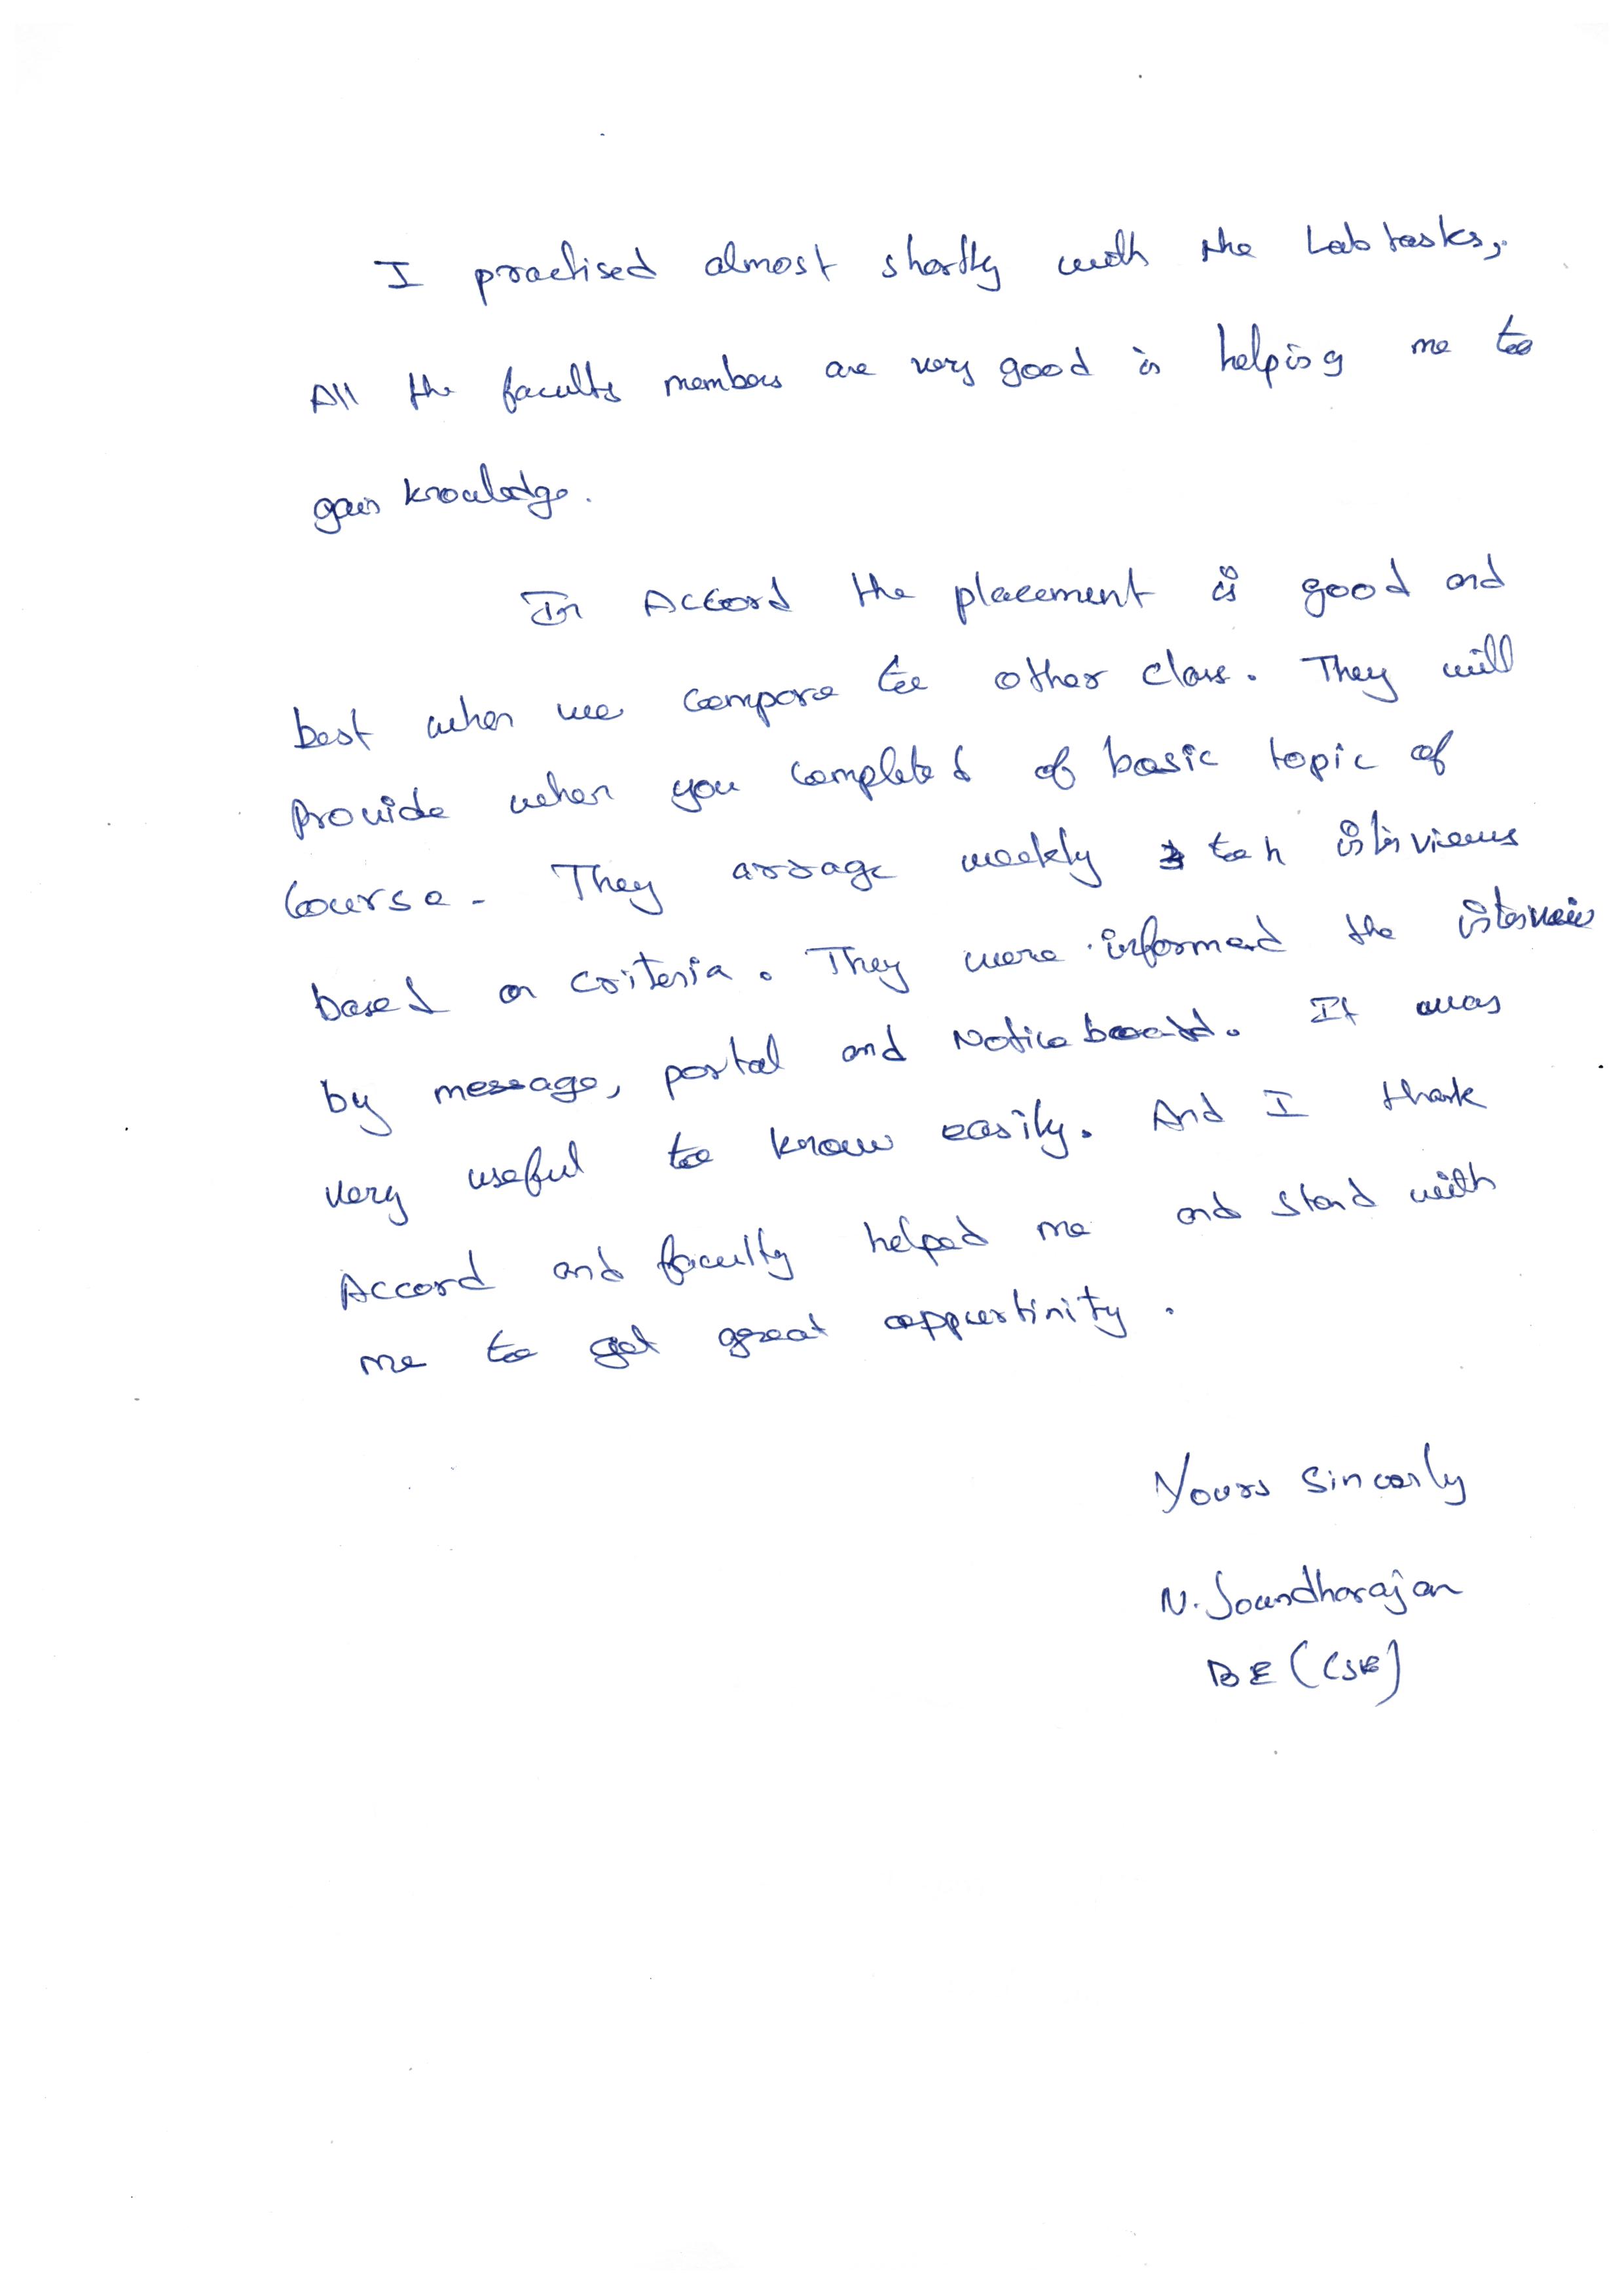 I practised almost shortly with the Lab tasks,
All the faculty members are very good in helping me to
gain knowledge.
In Accord the placement is good and
best when we compare to other class. They will
provide when you completed of basic topic of
Course. They arrage weekly interviews
based on criteria. They were informed the
by message, portal and Notice board. It was
very useful to know easily. And I thank
Accord and faculty helped me and stand with
me to get great oppurtinity.
Yours Sincerly
N. Soundharajan
BE (CSE)